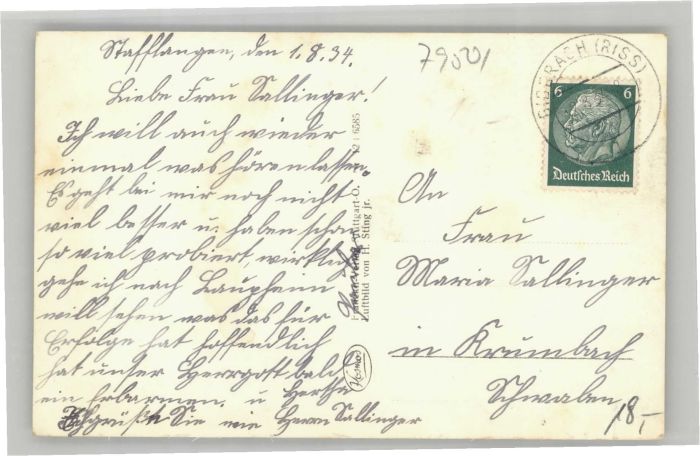 Stafflangen, den 1.8.34.
Liebe Frau Sallinger!
Ich will auch wieder
einmal was hören lassen.
Es geht bei mir noch nicht
viel besser u. haben schon
so viel probiert,
gehe ich nach Laupheim
will sehen was das für
Erfolge hat hoffendlich
hat unser Herrgott bald
ein Erbarmen. u
grüßt Sie wie Herrn Sallinger
Stuttgart-O.
Luftbild von H. Sting jr.
6585
79501
BIBERACH (RISS)
6 6
Deutsches Reich
An
Frau
Maria Sallinger
in Krumbach
Schwaben
18,-